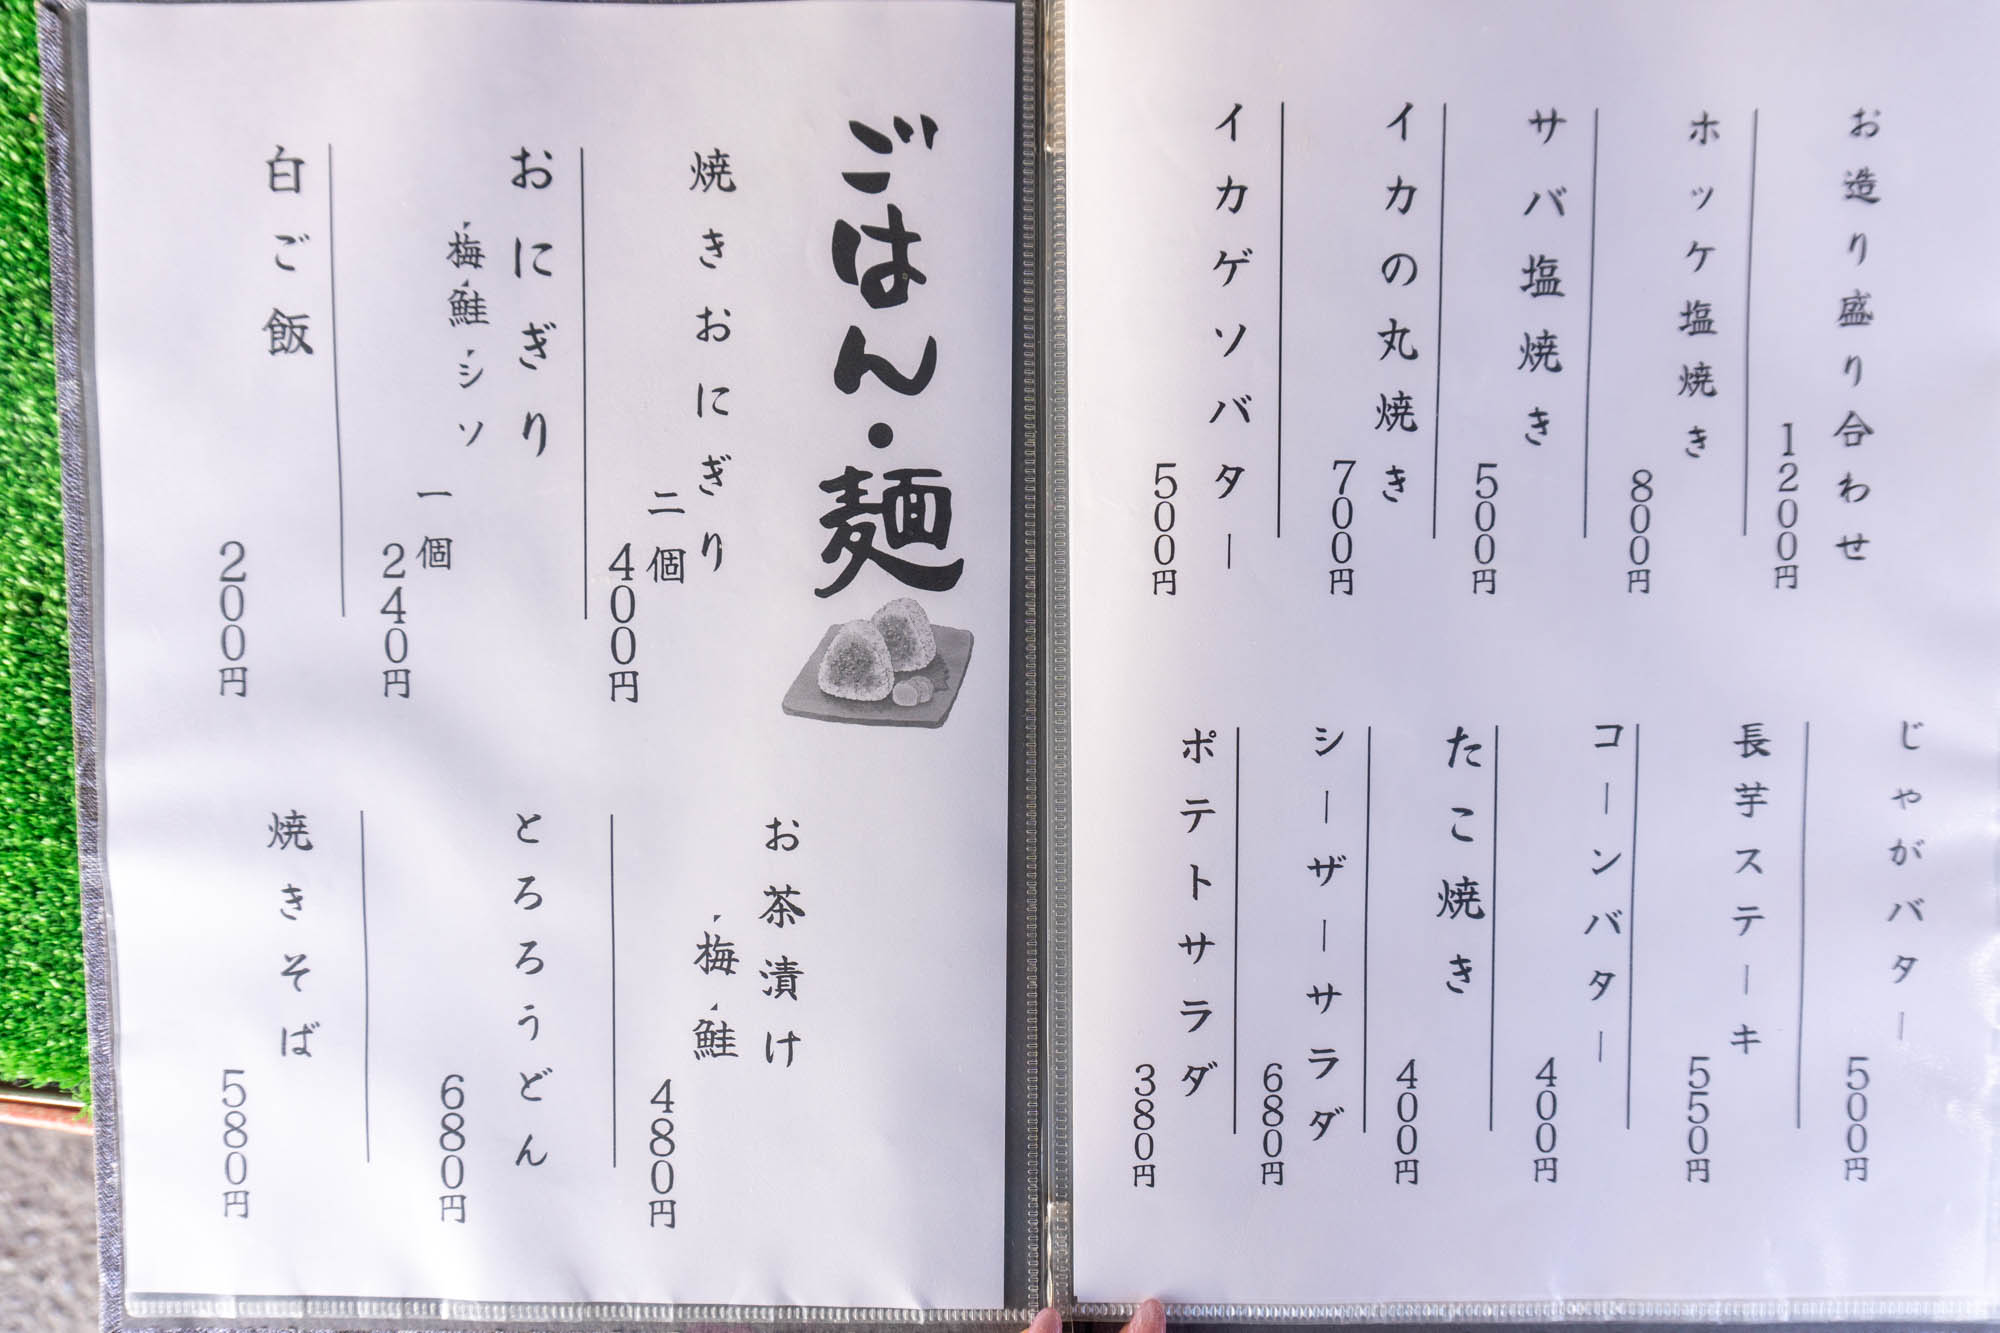 お造り盛り合わせ
1200円
ホッケ塩焼き
800円
サバ塩焼き
500円
イカの丸焼き
700円
イカゲソバター
500円
じゃがバター
500円
長芋ステーキ
550円
コーンバター
400円
たこ焼き
400円
シーザーサラダ
680円
ポテトサラダ
380円
ごはん・麺
焼きおにぎり
二個
400円
おにぎり
・梅・鮭・シソ
一個
240円
白ご飯
200円
お茶漬け
・梅・鮭
480円
とろろうどん
680円
焼きそば
580円